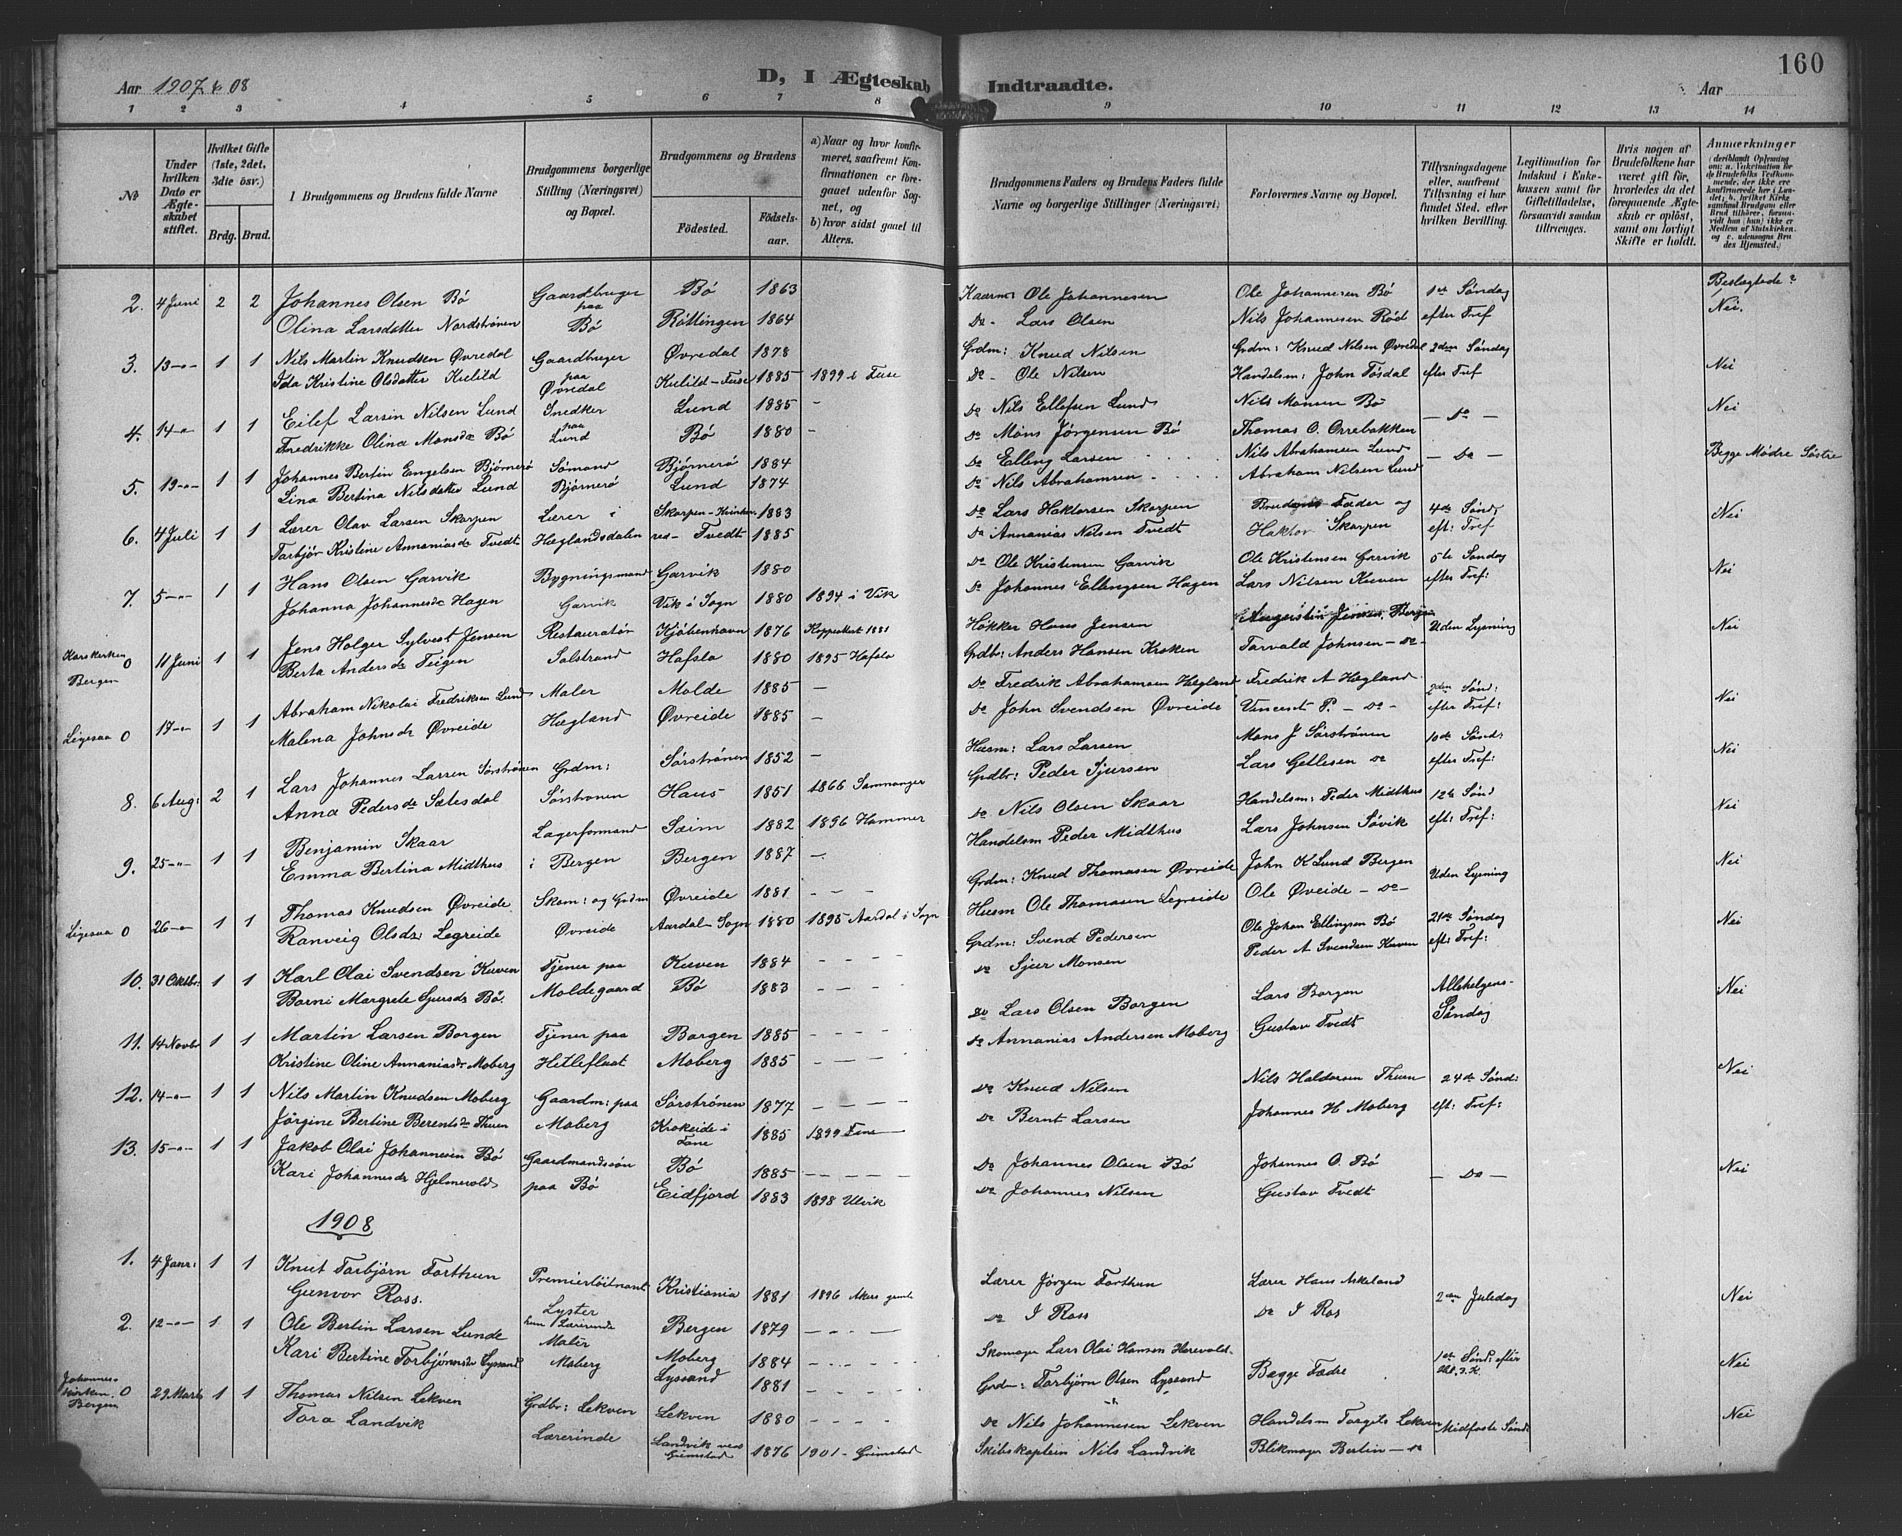 160
Aar 1907 & 08
D, I Ægteskab Indtraadte.
Aar
1 2 3 4 5 6 7 8 9 10 11 12 13 14
No
Under hvilken Dato er Ægteskabet stiftet.
Hvilket Gifte (1ste, 2det, 3die osv.)
Brdg. Brud.
I Brudgommens og Brudens fulde Navne
Brudgommens borgerlige Stilling (Næringsvei) og Bopæl.
Brudgommens og Brudens
Fødested.
Fødselsaar.
a) Naar og hvor konfirmeret, saafremt Konfirmationen er foregaaet udenfor Sognet, og
b) hvor sidst gaaet til Alters.
Brudgommens Faders og Brudens Faders fulde Navne og borgerlige Stillinger (Næringsvei)
Forlovernes Navne og Bopæl.
Tillysningsdagene eller, saafremt Tillysning ei har fundet Sted, efter hvilken Bevilling.
Legitimation for Indskud i Enkekassen samt for Giftetilladelse, forsaavidt saadan tiltrænges.
Hvis nogen af Brudefolkene har været gift før, hvorledes da det foregaaende Ægteskab er opløst, samt om lovligt Skifte er holdt.
Anmærkninger
2. 4 Juni 2 2 Johannes Olsen Bø Gaardbruger Bø 1863 Ole Johannesen Ole Johannesen Bø 1ste Søndag Beslægtede?
Olina Larsdatter Nordstrønen paa Bø Røttingen 1864 Do - Lars Olsen Nils Johannesen Rød efter Tref Nei.
3. 13-"- 1 1 Nils Martin Knudsen Øvredal Gaardbruger Øvredal 1878 Grdm: Knud Nilsen Grdm: Knud Nilsen Øvredal 2den Søndag
Ida Kristine Olsdatter Kielild paa Øvredal Kielild - Fuse 1885 1899 i Fuse Do - Ole Nilsen Handelsm: John Tøsdal efter Tref Nei
4. 14-"- 1 1 Eilef Larsin Nilsen Lund Snedker Lund 1885 - Do Nils Ellefsen Lund Nils Monsen Bø - Do - Nei
Fredrikke Olina Monsdr Bø paa Lund Bø 1880 - Do Mons Jørgensen Bø Thomas O. Orrebakken
5. 19-"- 1 1 Johannes Bertin Engelsen Bjørnerø Sømand Bjørnerø 1884 Do Elling Larsen Nils Abrahamsen Lund - Do - Begge Mødre Søstre
Lina Bertina Nilsdatter Lund Bjørnerø Lund 1874 Do Nils Abrahamsen Abraham Nilsen Lund
6. 4 Juli 1 1 Lærer Olav Larsen Skorpen Lærer i Skorpen - Kvinher- 1883 Do Lars Haktorsen Skorpen Fader og 4de Sønd, Nei
Torbjør Kristine Annaniasdr Tvedt Hæglandsdalen red - Tvedt 1885 Do Annanias Nilsen Tvedt Haktor Skorpen eft: Tref
7. 5-"- 1 1 Hans Olsen Garvik Bygningsmand Garvik 1880 Do Ole Kristensen Garvik Ole Kristensen Garvik 5te Søndag Nei
Johanna Johannesdr Hagen Garvik Vik i Sogn 1880 1894 i Vik Do Johannes Ellingsen Hagen Lars Nilsen Kuven efter Tref:
Korskirken Bergen 0 11 Juni 1 1 Jens Holger Sylvest Jensen Restauratør Kjøbenhavn 1876 1881 Høkker Hans Jensen Jensen, Bergen Uden Lysning Nei
Berta Andersdr Teigen Solstrand Hafslo 1880 1895 Hafslo Grdbr: Anders Hansen Kroken Torvald Johnsen - Do -
Ligesaa 0 17-"- 1 1 Abraham Nikolai Fredriksen Lund Maler Molde 1885 - Do Fredrik Abrahamsen Hægland Fredrik A Hægland 2den Sønd: Nei
Malena Johnsdr Øvreide Hægland Øvreide 1885 - Do John Svendsen Øvreide Vincent P. - Do - efter Tref:
8. 6 Aug: 2 1 Lars Johannes Larsen Sørstrønen Grdm: Sørstrønen 1852 - Husm: Lars Larsen Mons J Sørstrønen 10de Sønd: Nei
Anna Pedersdr Sætesdal Sørstrønen Haus 1851 1866 Samnanger Grdbr: Peder Sjursen Lars Gellesen Do efter Tref:
9. 25-"- 1 1 Benjamin Skaar Lagerformand Sæim 1882 1896 Hammer Do Nils Olsen Skaar Handelsm: Peder Midthus 12te Sønd Nei
Emma Bertina Midthus i Bergen Bergen 1887 - Handelsm Peder Midthus Lars Johnsen Søvik eft: Tref:
Ligesaa 0 26-"- 1 1 Thomas Knudsen Øvreide Skom: og Grdm Øvreide 1881 - - - Grdm: Knud Thomasen Øvreide John K Lund Bergen Uden Lysning Nei
Ranveig Olsdr: Legreide Øvreide Aardal - Sogn 1880 1895 Aardal i Sogn Husm Ole Thomasen Legreide Ole Øveide - Do -
10. 31 Oktbr: 1 1 Karl Olai Svendsen Kuven Tjener paa Kuven 1884 - - - - Grdm: Svend Pedersen Ole Johan Ellingsen Bø 21de Søndag Nei
Barni Margrete Sjursdr Bø. Moldegaard Bø 1883 - - - - Do Sjur Monsen Peder A Svendsen Kuven eft: Tref:
11. 14 Novbr 1 1 Martin Larsen Borgen Tjener paa Borgen 1885 - - - - Do Lars Olsen Borgen Lars Borgen Allehelgens- Nei
Kristine Oline Annaniasdr Moberg Hetleflaat Moberg 1885 - - - - Do Annanias Andersen Moberg Gustav Tvedt Søndag
12. 14-"- 1 1 Nils Martin Knudsen Moberg Gaardm: paa Sørstrønen 1877 - - - - Do Knud Nilsen Nils Haldorsen Thuen 24de Sønd: Nei
Jørgine Bertine Berentsdr Thuen Moberg Krokeide i Fane 1885 1899 Fane Do Bernt Larsen Johannes H Moberg eft: Tref:
13. 15-"- 1 1 Jakob Olai Johannesen Bø Gaardmandssøn Bø 1885 - - - - Do Johannes Olsen Bø Johannes O. Bø - Do - Nei
Kari Johannesdr Hjelmevold paa Bø Eidfjord 1883 1898 Ulvik Do Johannes Nilsen Gustav Tvedt
1908
1. 4 Janr: 1 1 Knut Torbjørn Forthun Premierløitnant Kristiania 1881 1896 Akers Lærer Jørgen Forthun Lærer Hans Askeland 2den Juledag Nei
Gunvor Ross. Lyster hun Lærerinde Bergen 1879 - - - - Do I Ross Do I Ros
2. 12-"- 1 1 Ole Bertin Larsen Lunde Maler Moberg 1884 - - - - Skomager Lars Olai Hansen Begge Fædre 1ste Sønd: efter Nei
Kari Bertine Torbjørnsdr Lyssand Moberg Lyssand 1881 - - - - Grdm: Torbjørn Olsen Lyssand H. 3. K.
Johanneskirken Bergen 0 29 Marts 1 1 Thomas Nilsen Lekven Grdbr: Lekven Lekven 1880 - - - - Do Nils Johannesen Lekven Handelsm Torgils Lekven Midfaste Sønd: Nei
Tora Landvik Lærerinde Landvik ved Grimstad 1876 1901 - Grimstad Skibskaptein Nils Landvik Blikmager Bertin - Do